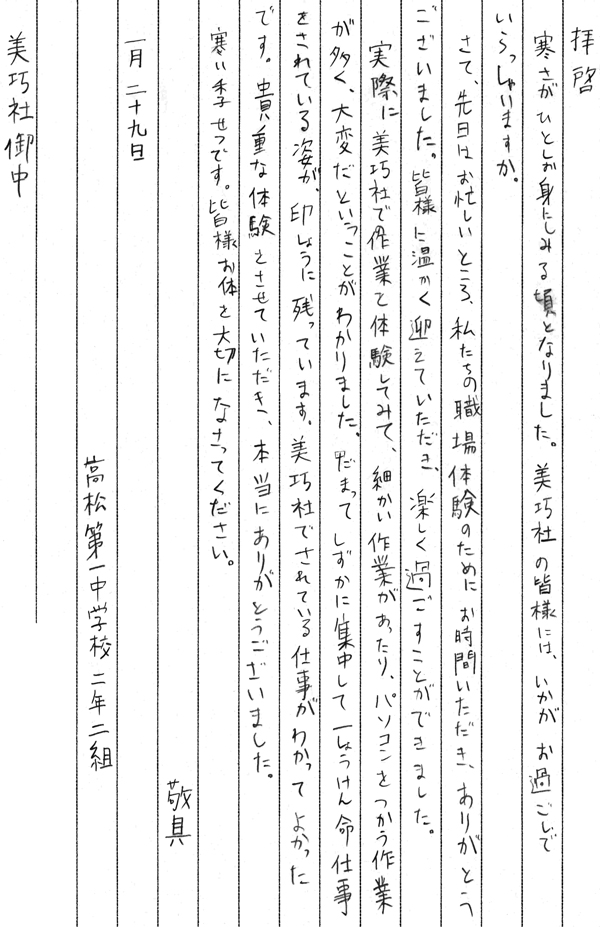 拝啓
寒さがひとしお身にしみる頃となりました。美巧社の皆様には、いかがお過ごしで
いらっしゃいますか。
さて、先日はお忙しいところ、私たちの職場体験のためにお時間いただき、ありがとう
ございました。皆様に温かく迎えていただき、楽しく過ごすことができました。
実際に美巧社で作業を体験してみて、細かい作業があったり、パソコンをつかう作業
が多く、大変だということがわかりました。だまってしずかに集中して一しょうけん命仕事
をされている姿が、印しょうに残っています。美巧社でされている仕事がわかってよかった
です。貴重な体験をさせていただき、本当にありがとうございました。
寒い季せつです。皆様お体を大切になさってください。
敬具
一月二十九日
高松第一中学校二年二組
美巧社御中